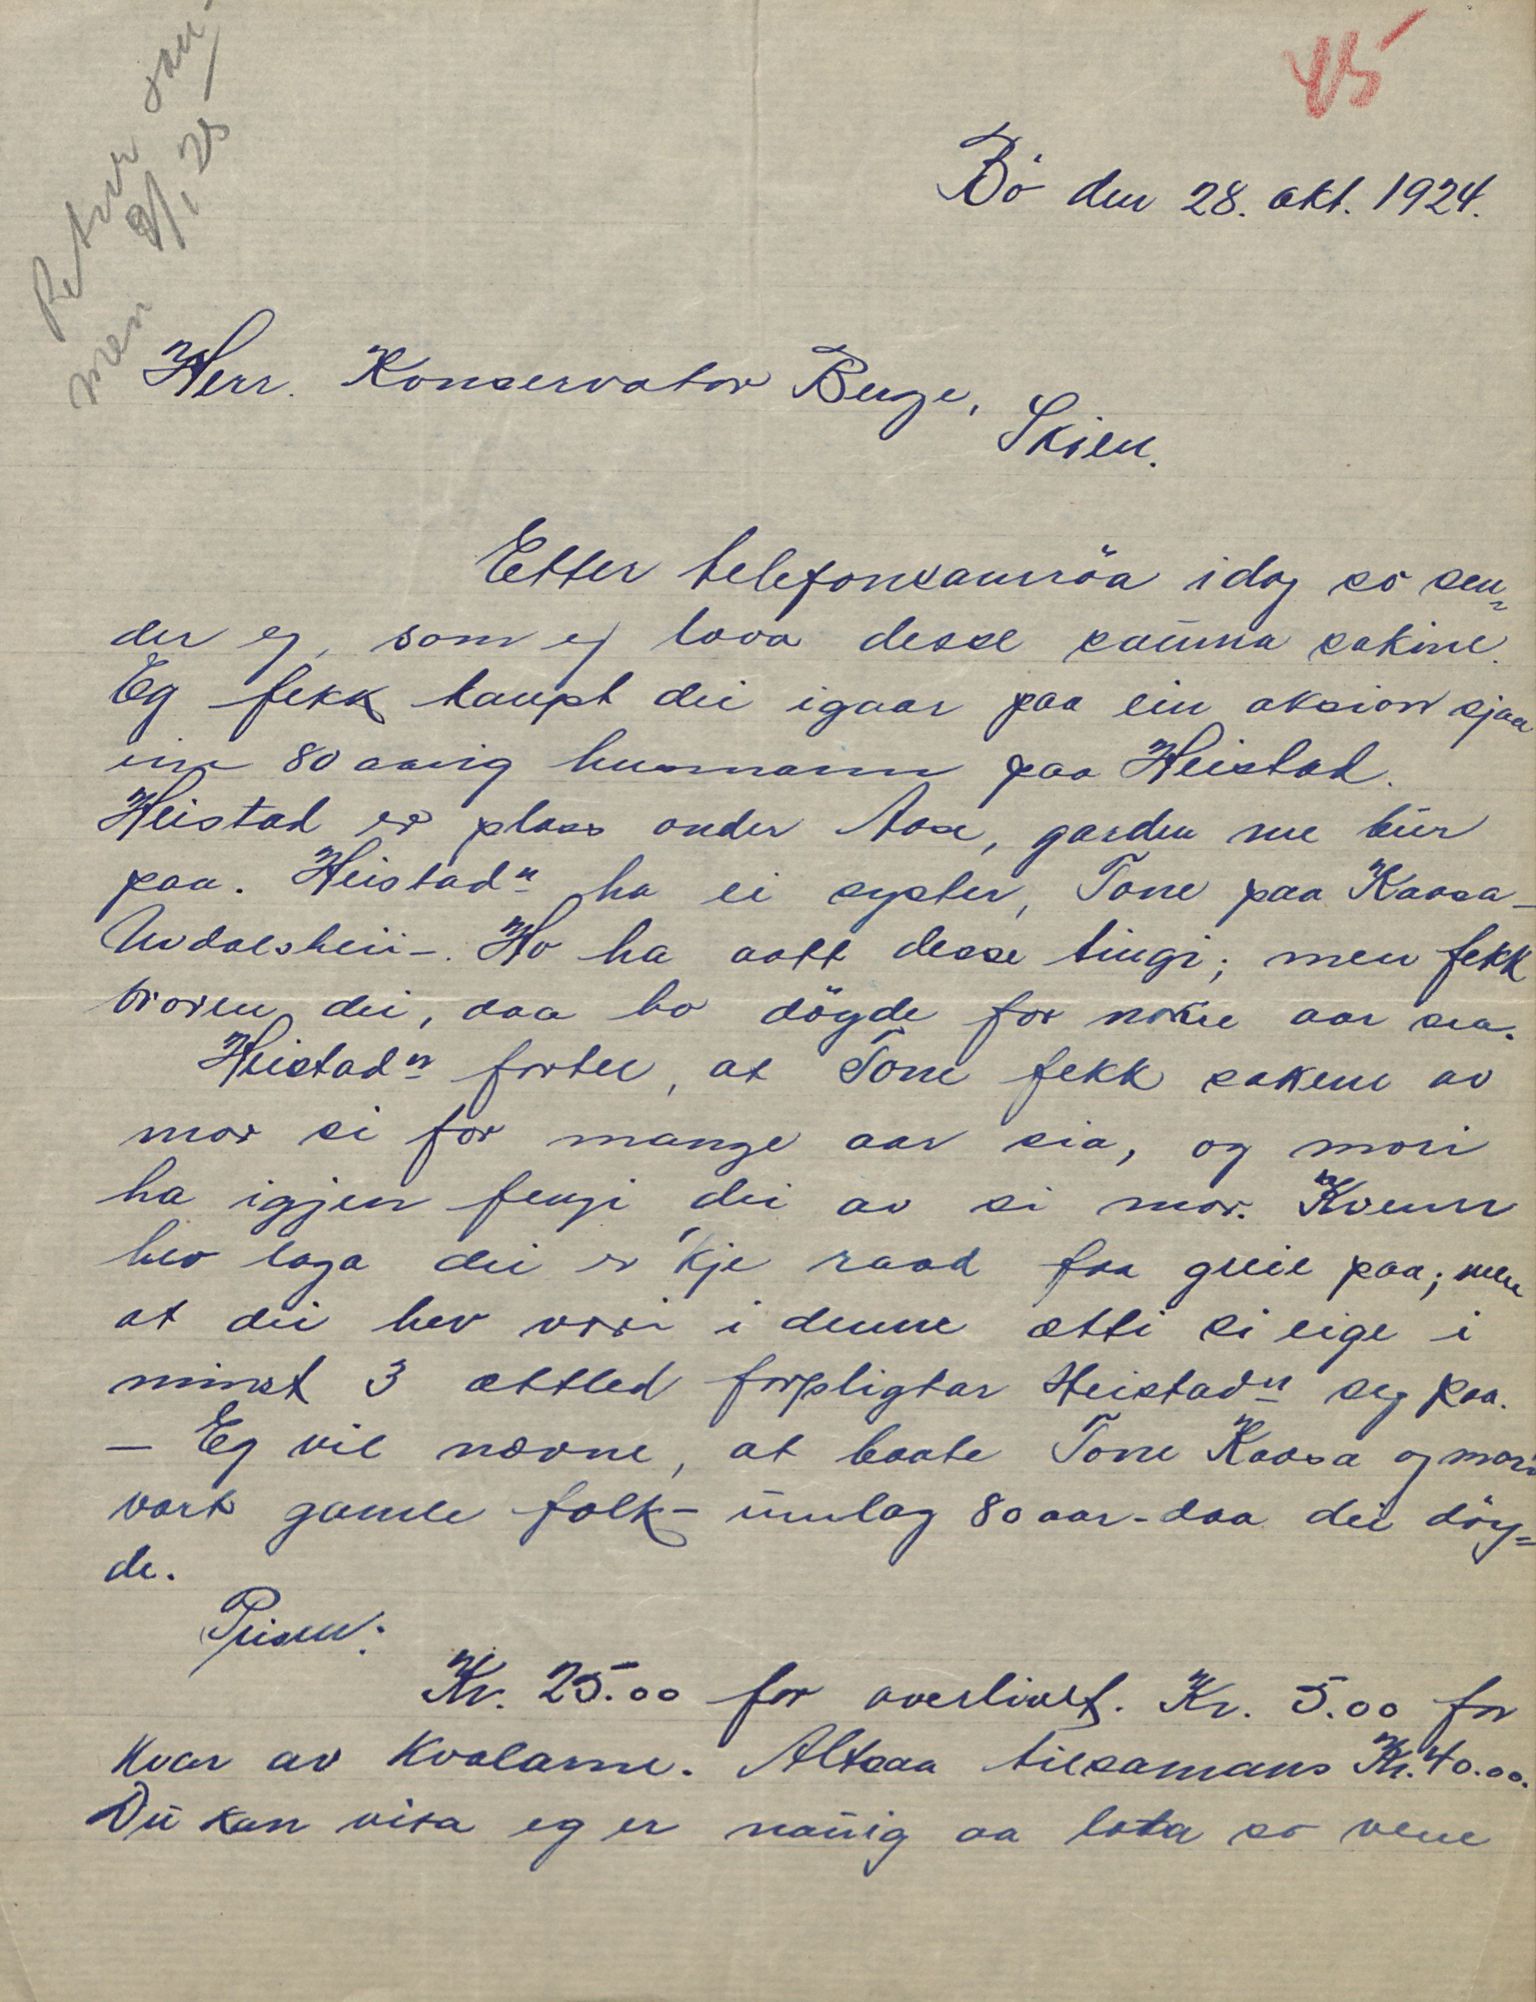 Retur sam-
men 8/1 25
45
Bö den 28. okt. 1924.
Herr. Konservator Berge,
Skien.
Etter telefonsamröa idag so sen-
der eg, som eg lova desse sauma sakine.
Eg fekk kaupt dei igaar paa ein aksion sjaa
ein 80 aarig husmann paa Heistad.
Heistad er plass under Aase, garden me bur
paa. Heistadn ha ei syster, Tone paa Kaasa -
Uvdalsheii -. Ho ha aatt desse tingi; men fekk
broren dei, daa ho döyde for nokre aar sea.
Heistadn fortel, at Tone fekk sakene av
mor si for mange aar sia, og mori
ha igjen fengi dei av si mor. Kvenn
hev laga dei er 'kje raad faa greie paa; men
at dei hev vori i denne ætti si eige i
minst 3 ættled forpligtar Heistadn seg paa.
- Eg vil nævne, at baate Tone Kaasa og mori
vart gamle folk - umlag 80 aar - daa dei döy-
de.
Prisen:
Kr. 25.00 for overlivet. Kr. 5.00 for
kvar av kvalarne. Altsaa tilsamans Kr. 40.00.
Du kan vita eg er nauig aa lata so vene